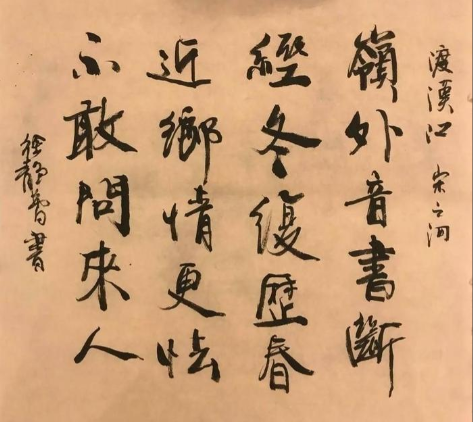 渡漢江 宋之問
嶺外音書斷
經冬復歷春
近鄉情更怯
不敢問來人
徐靜書